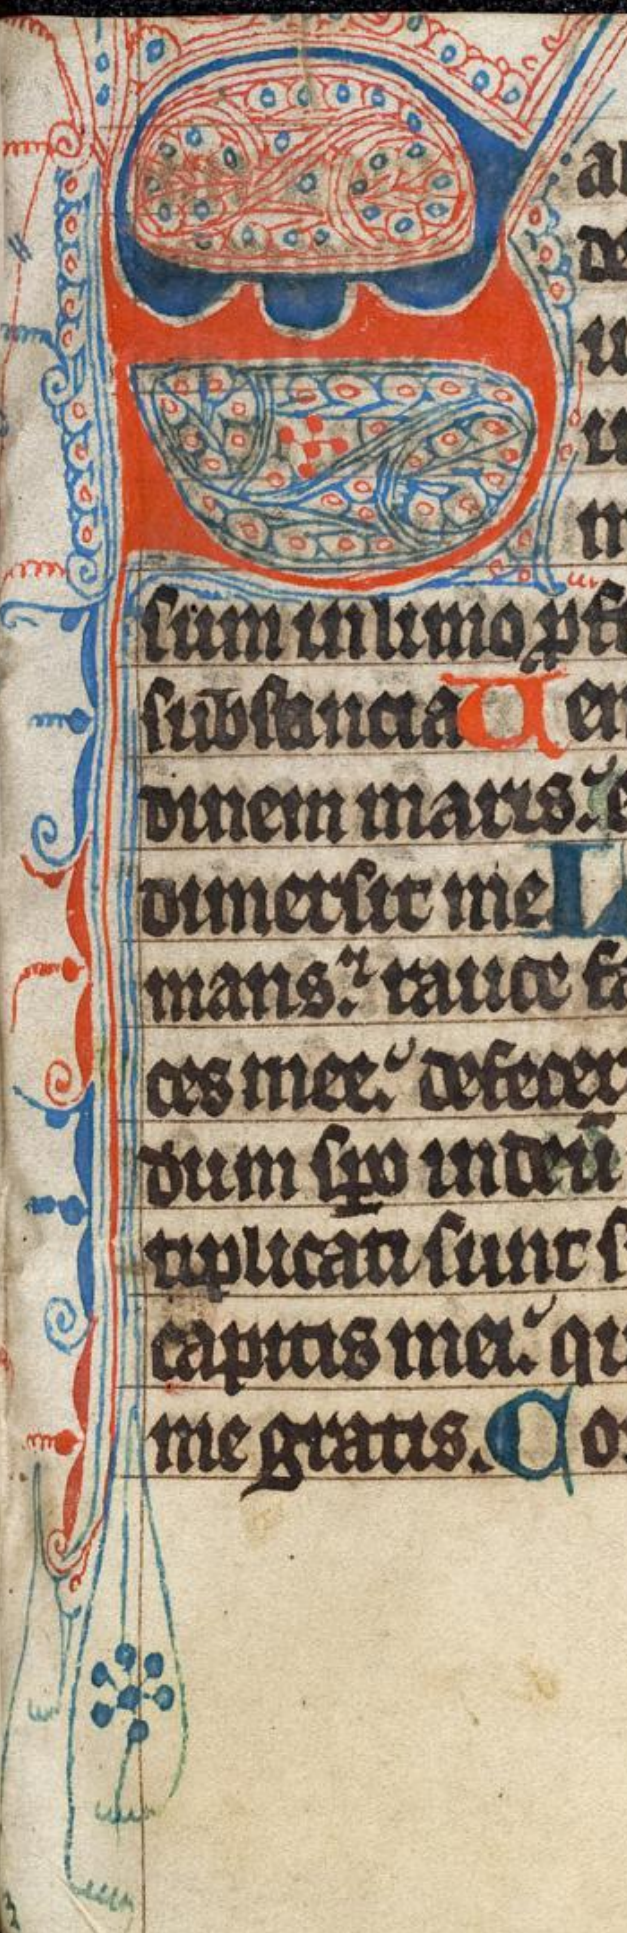 S al
de
u
u
m
sum in limo ꝓf
substancia Ven
dinem maris: e
dimersit me L
mans: rauce fa
ces mee: defecer
dum spo in deū
tiplicati sunt s
capitis mei: qu
me gratis. Co